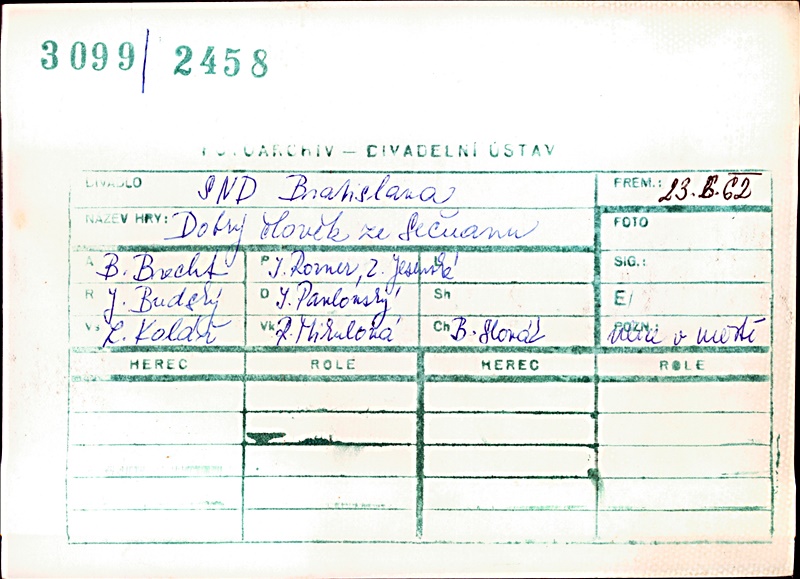 3099/ 2458
FOTOARCHIV — DIVADELNÍ ÚSTAV
DIVADLO SND Bratislava PREM.: 23.6.62
NÁZEV HRY: Dobrý člověk ze Sečuanu FOTO
A B. Brecht P J. Rozner, Z. Jesenská SIG.:
R J. Budský D J. Pavlonský Sh E/
Vs L. Kolář Vk Ch B. Slovák POZN.: není v
HEREC ROLE HEREC ROLE